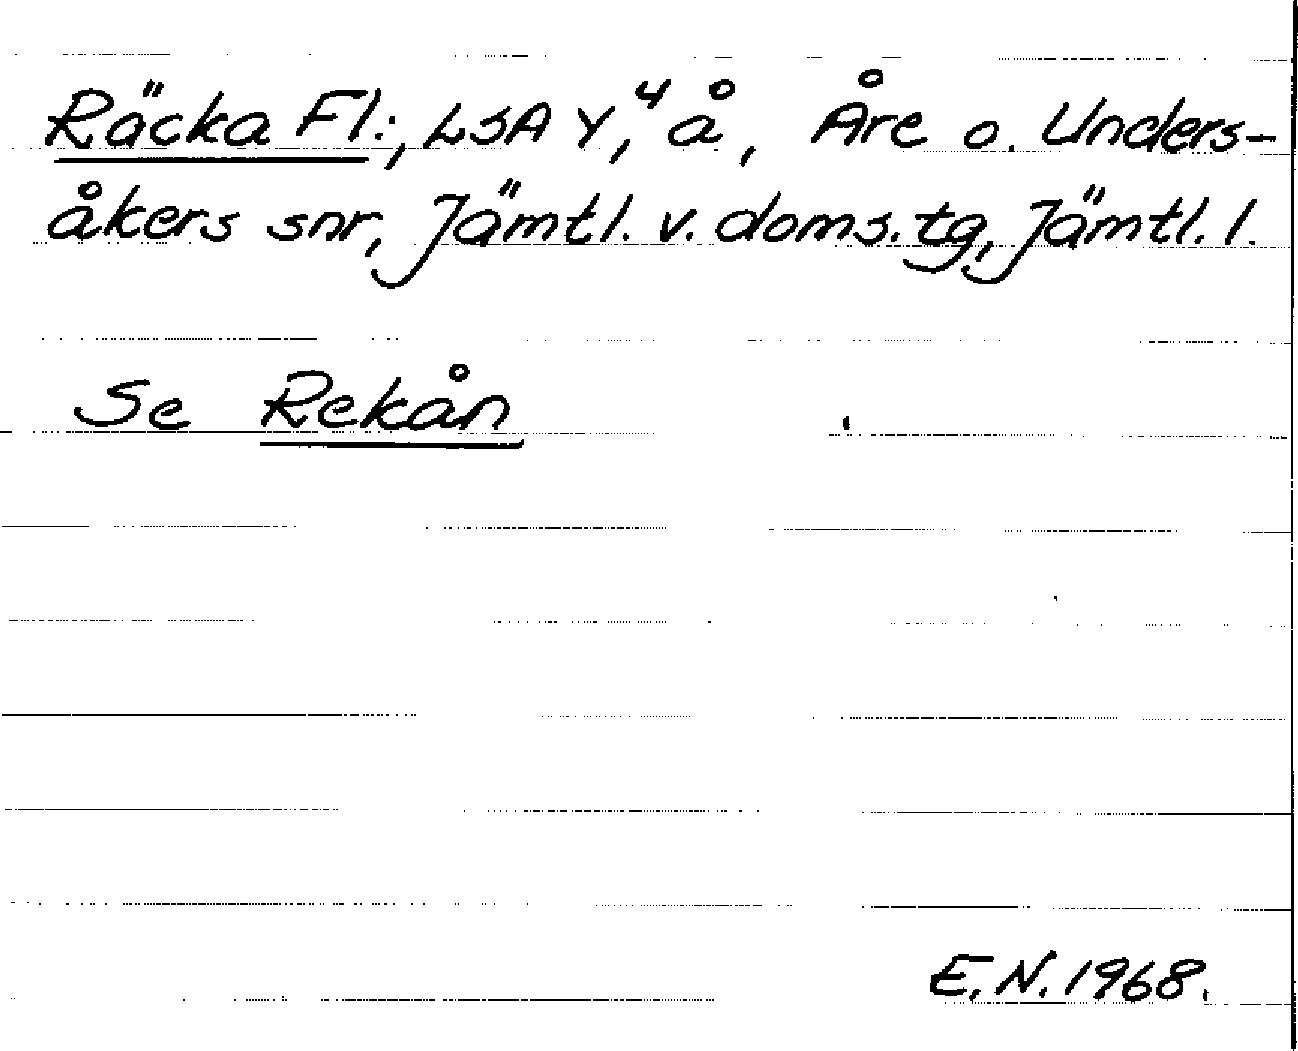 Räcka Fl:, LSA Y,⁴ å, Åre o. Unders-
åkers snr, Jämtl. v. doms. tg, Jämtl. l.
Se Rekån
E.N. 1968.